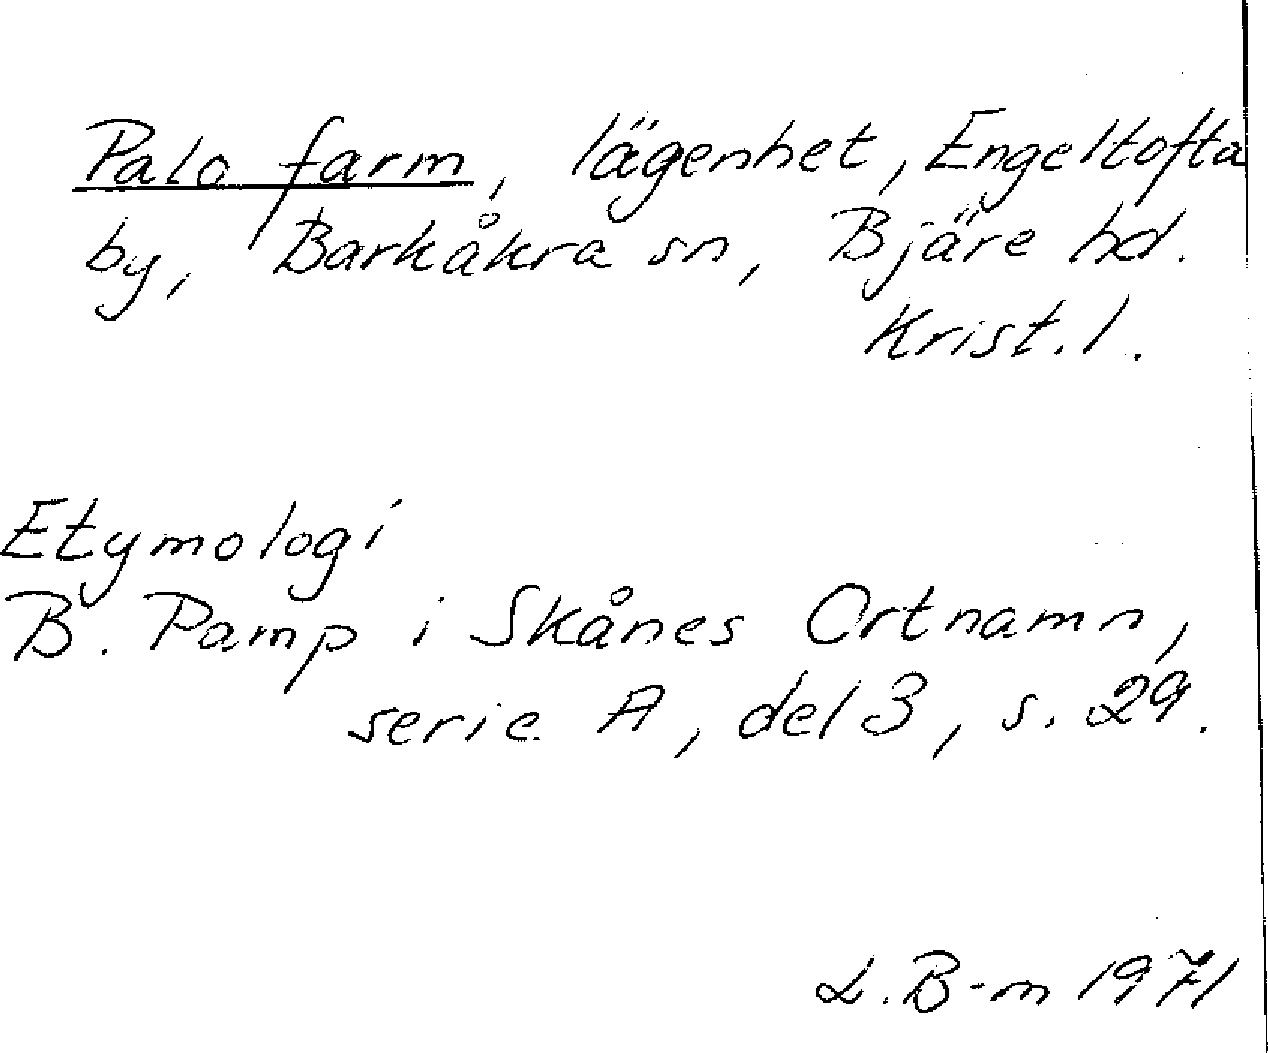 Palo farm, lägenhet, Engeltofta
by, Barkåkra sn, Bjäre hd.
Krist. l.
Etymologi
B. Pamp i Skånes Ortnamn,
serie A, del 3, s. 29.
L. B-m 1971